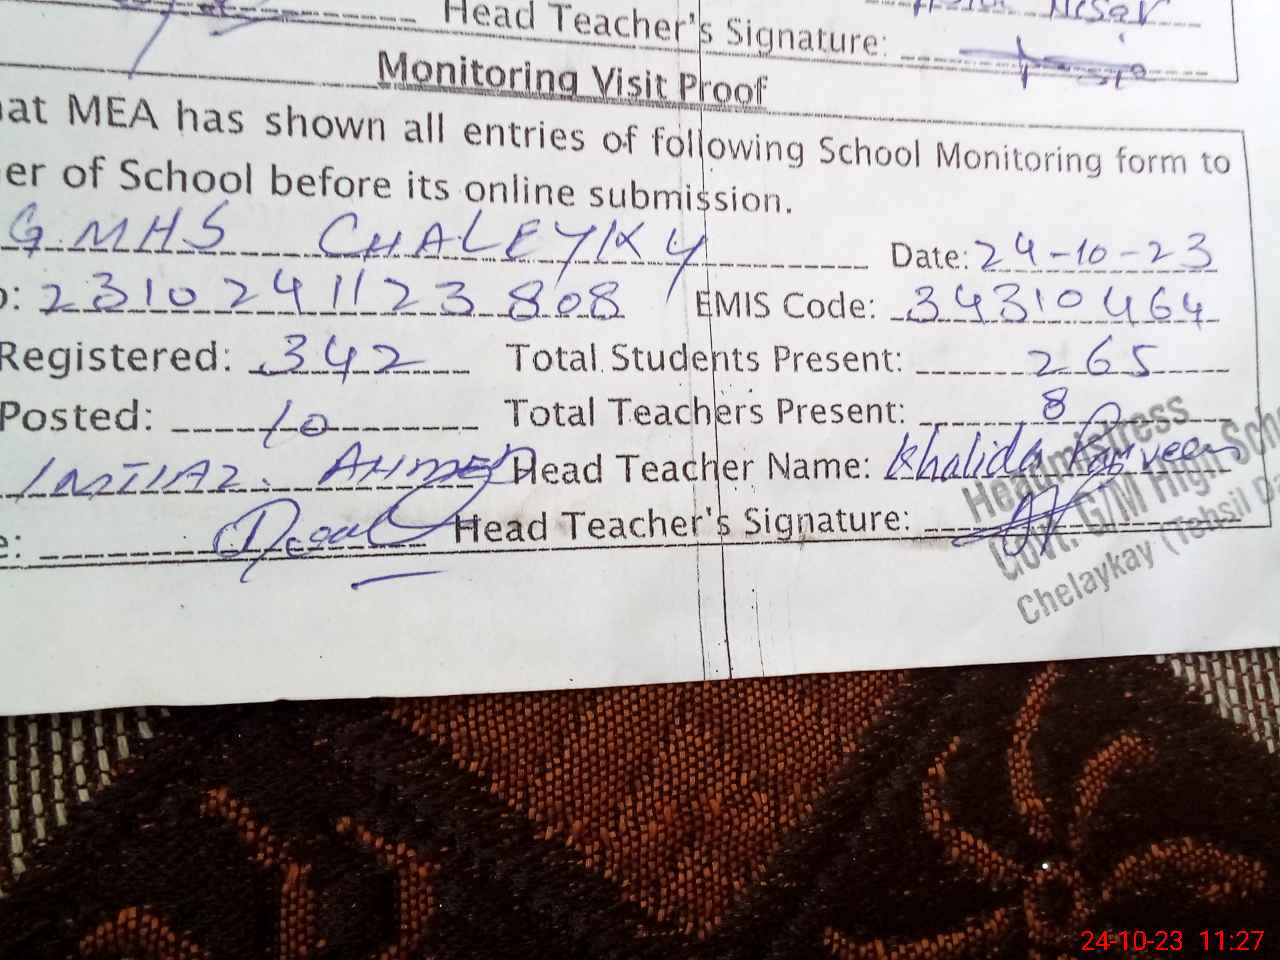 Head Teacher's Signature:
Monitoring Visit Proof
at MEA has shown all entries of following School Monitoring form to
er of School before its online submission.
G.MHS CHALEYKY Date: 24-10-23
: 231024 1123 808 EMIS Code: 34310464
Registered: 342 Total Students Present: 265
Posted: 10 Total Teachers Present: 8
IMTIAZ AHMED Head Teacher Name: Khalida Parveen
e: Head Teacher's Signature:
Headmistress
Govt. G/M High Scho
Chelaykay (Tehsil D
24-10-23 11:27